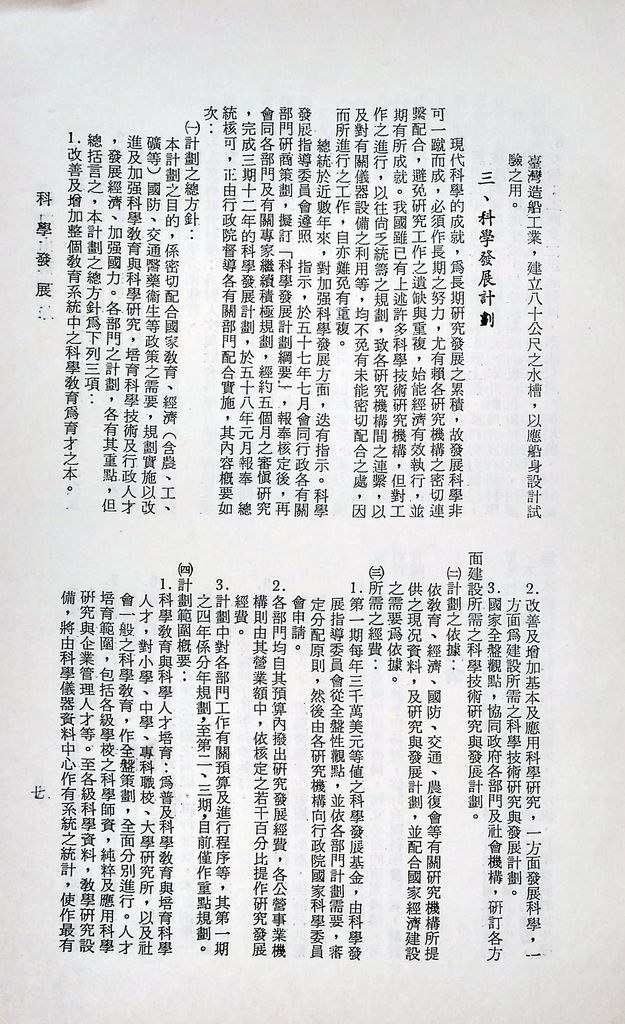 臺灣造船工業，建立八十公尺之水槽，以應船身設計試
驗之用。
三、科學發展計劃
現代科學的成就，爲長期硏究發展之累積，故發展科學非
可一蹴而成，必須作長期之努力，尤有賴各硏究機構之密切連
繫配合，避免硏究工作之遺缺與重複，始能經濟有效執行，並
期有所成就。我國雖已有上述許多科學技術硏究機構，但對工
作之進行，以往尙乏統籌之規劃，致各硏究機構間之連繫，以
及對有關儀器設備之利用等，均不免有未能密切配合之處，因
而所進行之工作，自亦難免有重複。
總統於近數年來，對加强科學發展方面，迭有指示。科學
發展指導委員會遵照　指示，於五十七年七月會同行政各有關
部門硏商策劃，擬訂「科學發展計劃綱要」，報奉核定後，再
會同各部門及有關專家繼續積極規劃，經約五個月之審愼硏究
，完成三期十二年的科學發展計劃，於五十八年元月報奉　總
統核可，正由行政院督導各有關部門配合實施，其內容概要如
次：
㈠計劃之總方針：
本計劃之目的，係密切配合國家敎育、經濟（含農、工、
礦等）國防、交通醫藥衞生等政策之需要，規劃實施以改
進及加强科學敎育與科學硏究，培育科學技術及行政人才
，發展經濟、加强國力。各部門之計劃，各有其重點，但
總括言之，本計劃之總方針爲下列三項：
1.改善及增加整個敎育系統中之科學敎育爲育才之本。
科學發展
2.改善及增加基本及應用科學硏究，一方面發展科學，一
方面爲建設所需之科學技術硏究與發展計劃。
3.國家全盤觀點，協同政府各部門及社會機構，硏訂各方
面建設所需之科學技術硏究與發展計劃。
㈡計劃之依據：
依敎育、經濟、國防、交通、農復會等有關硏究機構所提
供之現況資料，及硏究與發展計劃，並配合國家經濟建設
之需要爲依據。
㈢所需之經費：
1.第一期每年三千萬美元等値之科學發展基金，由科學發
展指導委員會從全盤性觀點，並依各部門計劃需要，審
定分配原則，然後由各硏究機構向行政院國家科學委員
會申請。
2.各部門均自其預算內撥出硏究發展經費，各公營事業機
構則由其營業額中，依核定之若干百分比提作硏究發展
經費。
3.計劃中對各部門工作有關預算及進行程序等，其第一期
之四年係分年規劃，至第二、三期，目前僅作重點規劃。
㈣計劃範圍概要：
1.科學敎育與科學人才培育：爲普及科學敎育與培育科學
人才，對小學、中學、專科職校、大學硏究所，以及社
會一般之科學敎育，作全盤策劃，全面分別進行。人才
培育範圍，包括各級學校之科學師資，純粹及應用科學
硏究與企業管理人才等。至各級科學資料，敎學硏究設
備，將由科學儀器資料中心作有系統之統計，使作最有
七